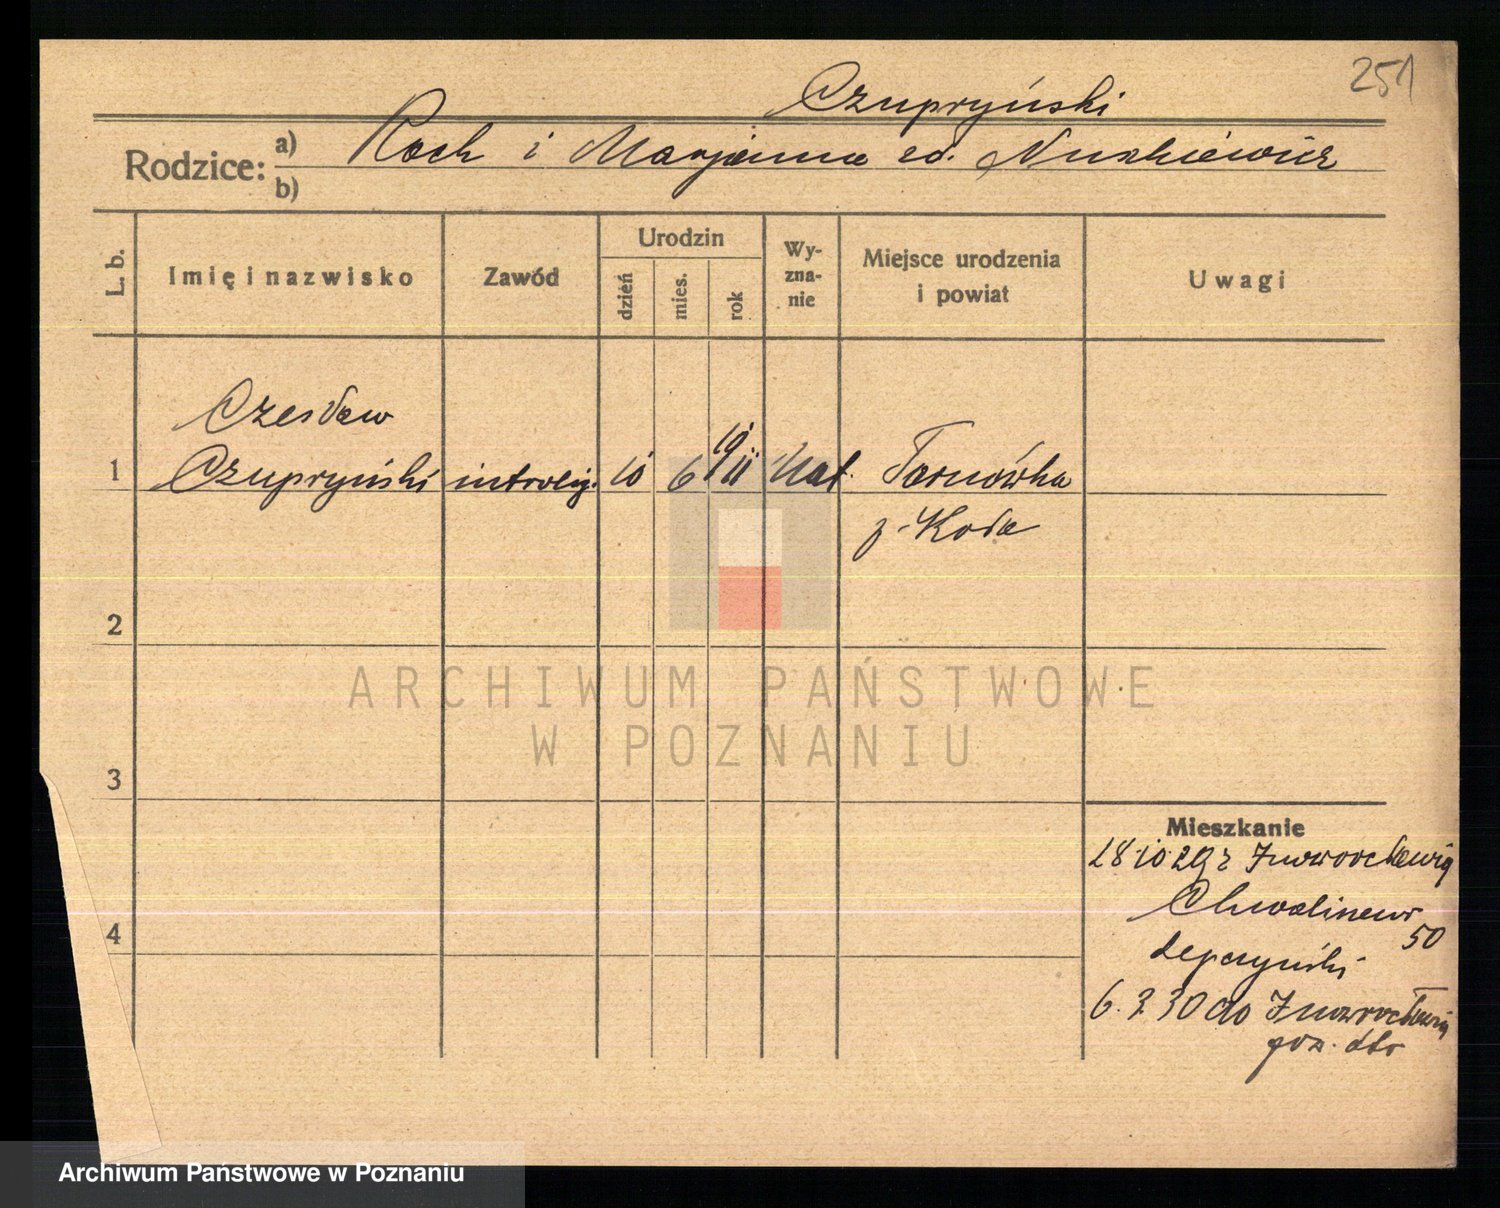 251
Czupryński
Rodzice: a) Roch i Marjanna zd.
b)
L. b.
Imię i nazwisko
Zawód
Urodzin
dzień
mies.
rok
Wy-
zna-
nie
Miejsce urodzenia
i powiat
Uwagi
Czesław
1 Czupryński introlig. 10 6 1911 kat. Tarnówka
p. Koło
2
3
4
ARCHIWUM PAŃSTWOWE
W POZNANIU
Mieszkanie
28.10.29 z Inowrocławia
50
6.3.30 do Inowrocławia
Archiwum Państwowe w Poznaniu